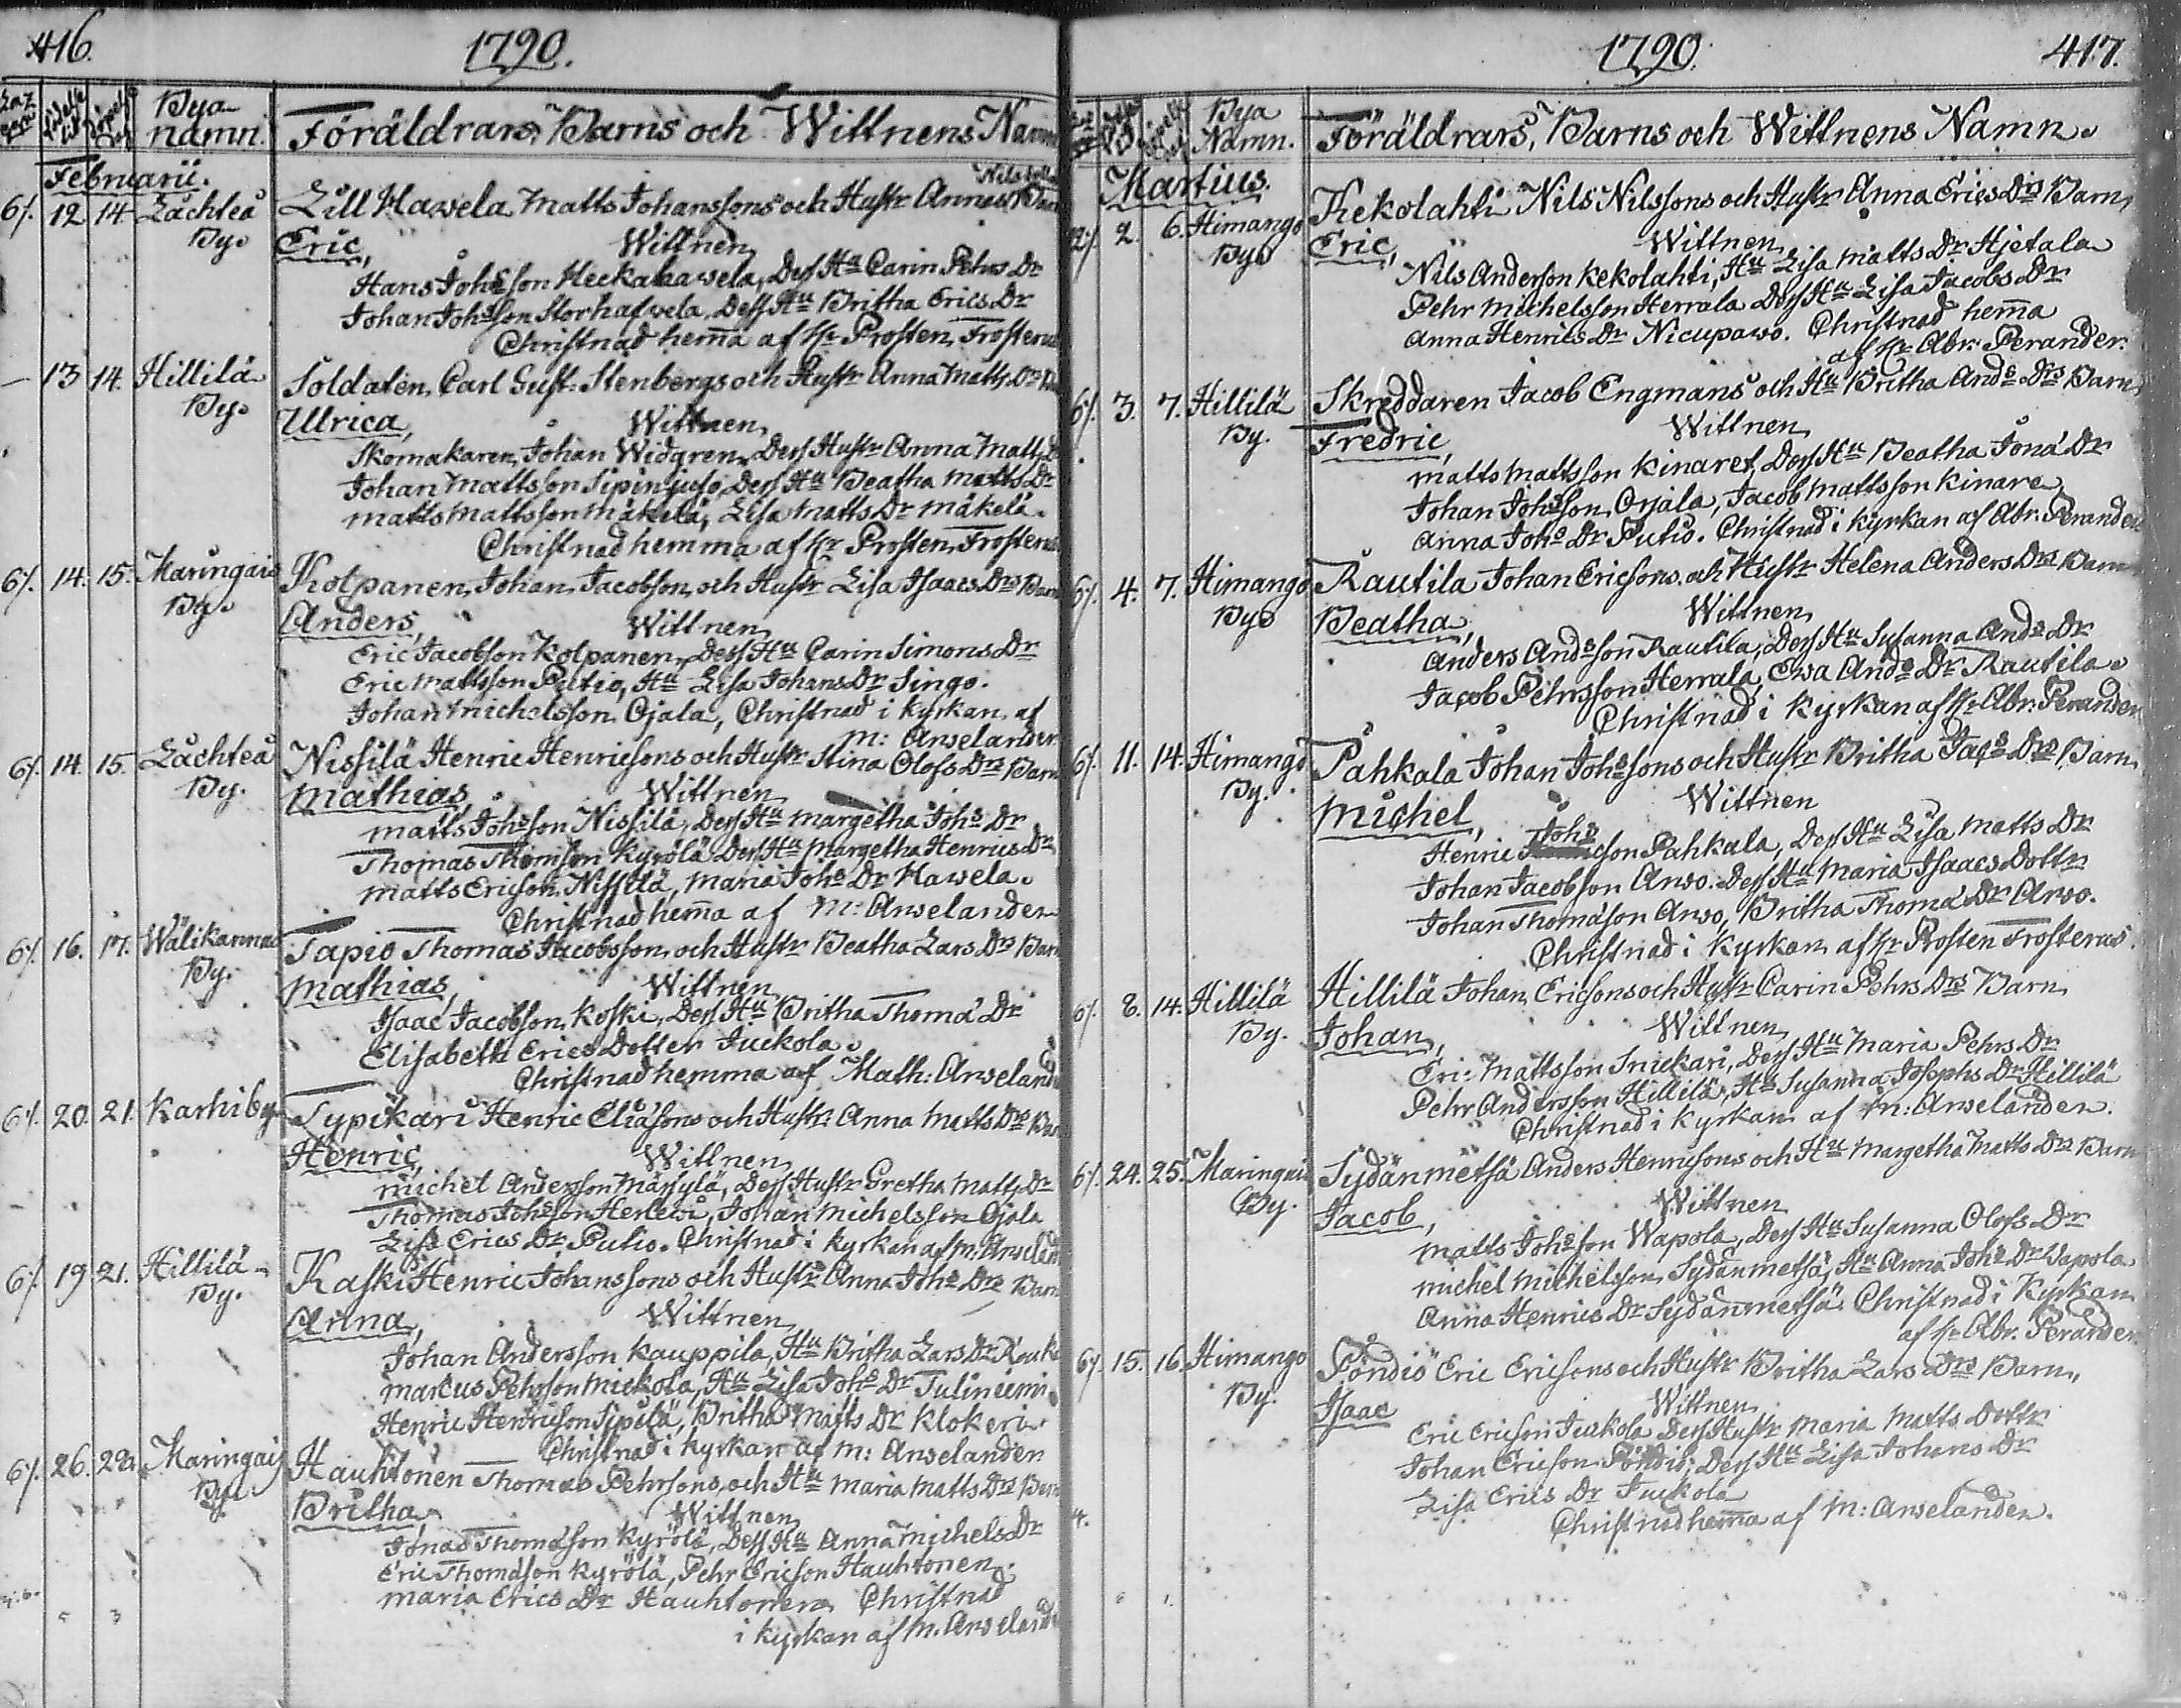 416.
1790.
Födelse tid
Döpelse dag
Bya namn.
Föräldrars, Barns och Wittnens Namn
Februarii.
Nils dotter
6/. 12. 14. Låchteå By. Lill Hawela Matts Johanssons och Hustr Annas Barn
Eric, Wittnen
Hans Johsson Heckahawela, Dess Hu Carin Pehrs Dr
Johan Johsson Storhafwela, Dess Hu Britha Erics Dr
Christnad hema af Hr Prosten Frosterus
— 13 14. Hillilä By. Soldaten Carl Gust: Stenbergs och Hustr Anna Matts Drs
Ulrica, Wittnen
Skomakaren Johan Widgren, Dess Hustr Anna Matts Dr
Johan Mattsson Sipinjuso, Dess Hu Beatha Matts Dr
Matts Mattsson Mäkelä, Lisa Matts Dr Mäkelä.
Christnad hemma af Hr Prosten Frosterus
6/. 14. 15. Maringais By. Kotpanen Johan Jacobsson och Hustr Lisa Isaacs Drs Barn
Anders, Wittnen
Eric Jacobsson Kotpanen, Dess Hu Carin Simons Dr
Eric Mattsson Putio, Hu Lisa Johans Dr Singo.
Johan Michelsson Ojala, Christnad i Kyrkan af
M: Arwelander
6/. 14. 15. Låchteå By. Nissilä Henric Henricsons och Hustr Stina Olofs Drs Barn
Mathias, Wittnen
Matts Johsson Nissilä, Dess Hu Margetha Johs Dr
Thomas Thomsson Kyrölä Dess Hu Margetha Henrics Dr
Matts Ericson Nissilä, Maria Johs Dr Hawela.
Christnad hema af M: Arwelander
6/. 16. 17. Wälikannas By. Tapio Thomas Jacobsson och Hustr Beatha Lars Drs Barn
Mathias, Wittnen
Isaac Jacobsson Koski, Dess Hu Britha Thoma Dr
Elisabeth Erics Dotter Juckola.
Christnad hemma af Math: Arwelander
6/. 20. 21. Karhi by Typikari Henric Eliasons och Hustr Anna Matts Drs
Henric, Wittnen
Michel Andersson Märsylä, Dess Hustr Gretha Matts Dr
Thomas Johsson Herlewi, Johan Michelsson Ojala
Lisa Erics Dr Putio. Christnad i kyrkan af M: Arwelan
6/. 19 21. Hillilä By. Kaski Henric Johanssons och Hustr Anna Johs Drs Barn
Anna, Wittnen
Johan Andersson Kauppila, Hu Britha Lars Dr
Marcus Pehrsson Mickola, Hu Lisa Johs Dr Tuliniemi.
Henric Henricson Sipilä, Britha Matts Dr Klokeri.
Christnad i kyrkan af M: Arwelander
6/. 26. 28. Maringais By. Hauhtonen Thomas Pehrsons och Hu Maria Matts Drs Barn
Britha, Wittnen
Jonas Thomasson Kyrölä, Dess Hu Anna Michels Dr
Eric Thomasson Kyrölä, Pehr Ericson Hauhtonen
Maria Erics Dr Hauhtonen Christnad
i kyrkan af M. Arwelander
1790.
417.
Bya Namn.
Föräldrars, Barns och Wittnens Namn.
Martius.
2. 6. Himango By Kekolahti Nils Nilssons och Hustr Anna Erics Drs Barn
Eric, Wittnen
Nils Anderson Kekolahti, Hu Lisa Matts Dr Hjetala
Pehr Michelsson Herrala Dess Hu Lisa Jacobs Dr
Anna Henrics Dr Nicupawo. Christnad hema
af Hr Abr: Perander.
6/. 3. 7. Hillilä By. Skreddaren Jacob Engmans och Hu Britha Ands Drs Barn
Fredric, Wittnen
Matts Mattsson Kinaret, Dess Hu Beatha Jona Dr
Johan Johsson Orjala, Jacob Mattsson Kinare
Anna Johs Dr Putio. Christnad i Kyrkan af Abr. Perander
6/. 4. 7. Himango By Rautila Johan Ericsons och Hustr Helena Anders Drs Barn
Beatha, Wittnen
Anders Andsson Rautila, Dess Hu Susanna Ands Dr
Jacob Pehrsson Herrala, Ewa Ands Dr Rautila.
Christnad i Kyrkan af Hr Abr: Perander
6/. 11. 14. Himango By. Pahkala Johan Johssons och Hustr Britha Jacs Drs Barn
Michel, Wittnen
Johs
Henric son Pahkala, Dess Hu Lisa Matts Dr
Johan Jacobsson Arwo. Dess Hu Maria Isaacs Dottr
Johan Thomasson Arwo, Britha Thoma Dr Arwo.
Christnad i Kyrkan af Hr Prosten Frosterus.
6/. 8. 14. Hillilä By. Hillilä Johan Ericsons och Hustr Carin Pehrs Drs Barn
Johan, Wittnen
Eric Mattsson Snickari, Dess Hu Maria Pehrs Dr
Pehr Andersson Hillilä, Hu Susanna Josephs Dr Hillilä
Christnad i Kyrkan af M: Arwelander.
6/. 24. 25. Maringais By. Sydänmetsä Anders Henricsons och Hu Margetha Matts Drs Barn
Jacob, Wittnen
Matts Johsson Wapola, Dess Hu Susanna Olofs Dr
Michel Michelsson Sydänmetsä, Hu Anna Johs Dr Wapola
Anna Henrics Dr Sydänmetsä. Christnad i Kyrkan
af Hr Abr. Perander
6/. 15. 16. Himango By. Pöndiö Eric Ericsons och Hustr Britha Lars Drs Barn,
Isaac Wittnen
Eric Ericson Juckola Dess Hustr Maria Matts Dottr
Johan Ericson Pöndiö, Dess Hu Lisa Johans Dr
Lisa Erics Dr Juckola
Christnad hema af M: Arwelander.